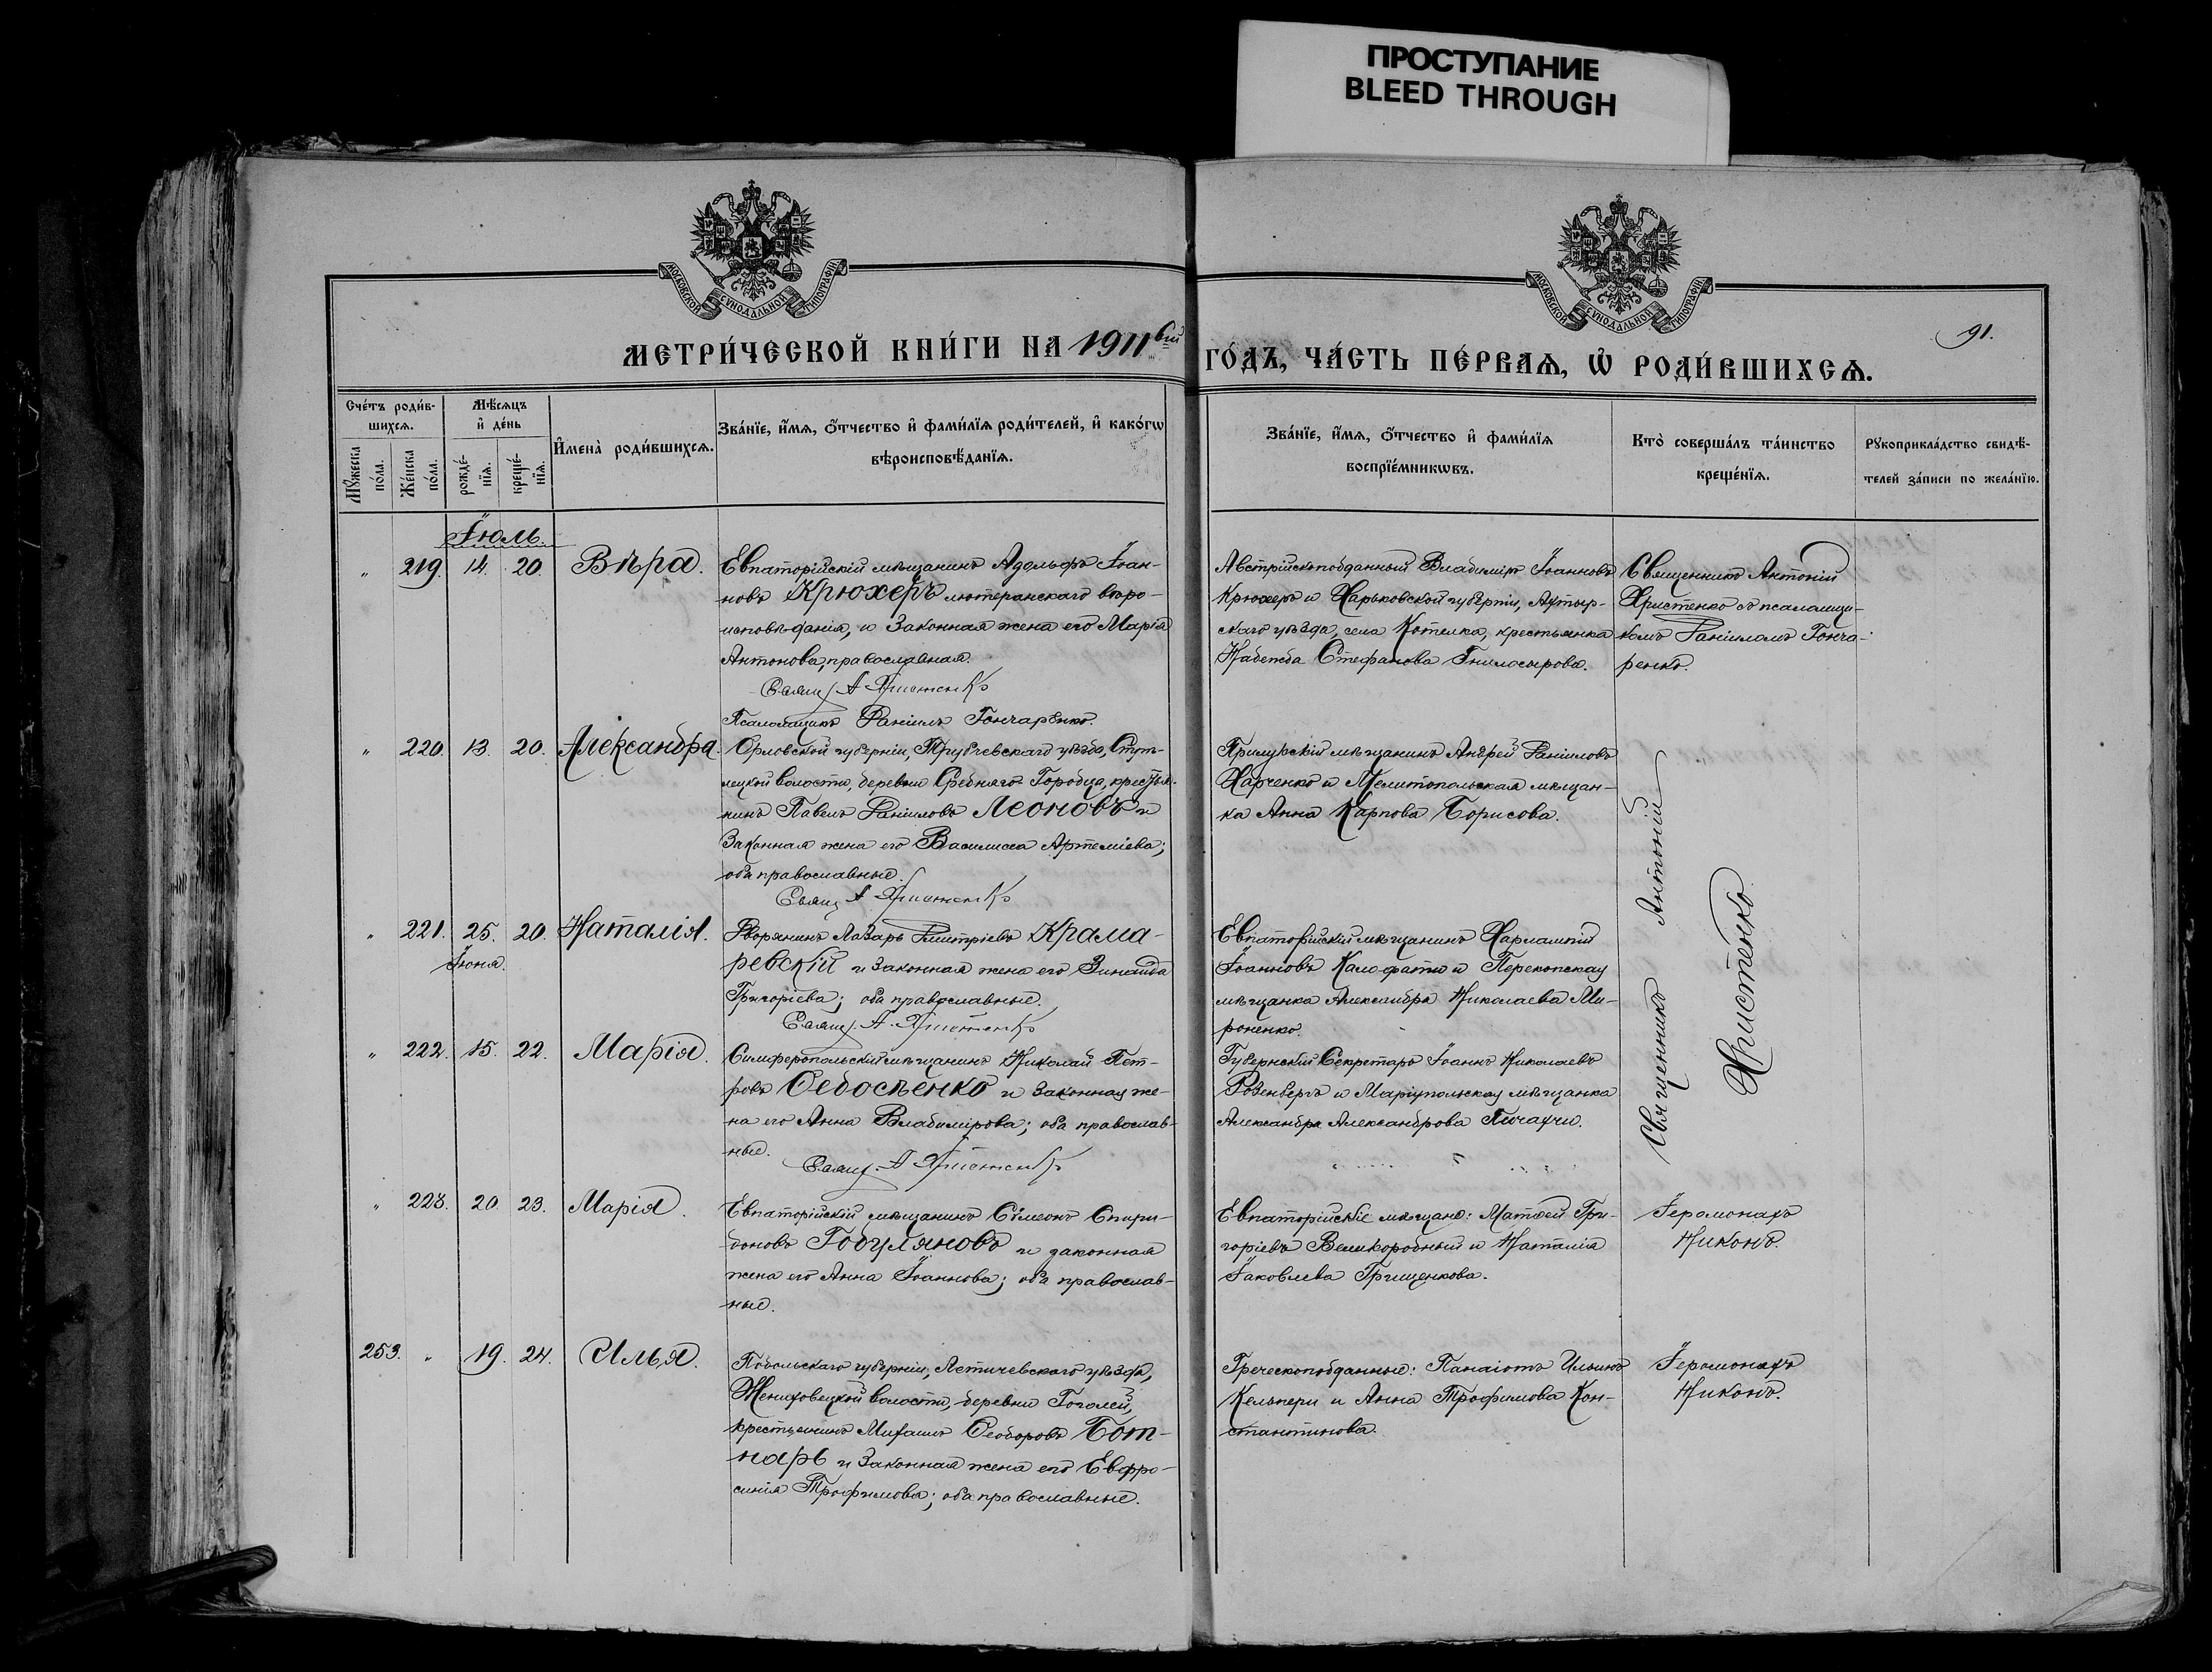 ПРОСТУПАНИЕ
BLEED THROUGH
МОСКОВСКОЙ СУНОДАЛЬНОЙ ТИПОГРАФІИ
МОСКОВСКОЙ СУНОДАЛЬНОЙ ТИПОГРАФІИ
91.
МЕТРИ́ЧЕСКОЙ КНИ́ГИ НА 1911вый ГО́ДЪ, ЧА́СТЬ ПЕ́РВАѦ, Ѡ҆ РОДИ́ВШИХСѦ.
Сче́тъ роди́в-
шихсѧ.
Мꙋ́жеска
по́ла.
Же́нска
по́ла.
Мѣ́сѧцъ
и҆ де́нь
рожде́-
нїѧ.
креще́-
нїѧ.
И҆мена̀ роди́вшихсѧ.
Зва́нїе, и҆́мѧ, ѻ҆́тчество и҆ фами́лїѧ роди́телей, и҆ како́гѡ
вѣроисповѣ́данїѧ.
Зва́нїе, и҆́мѧ, ѻ҆́тчество и҆ фами́лїѧ
воспрїе́мникѡвъ.
Кто̀ соверша́лъ та́инство
креще́нїѧ.
Рꙋкоприкла́дство свидѣ́-
телей за́писи по жела́нїю.
Іюль.
" 219. 14. 20. Вѣра.
Евпаторійскій мѣщанинъ Адольфъ Іоан-
новъ Крюхеръ лютеранскаго вѣро-
исповѣданія, и законная жена его Марія
Антонова, православная.
Свящ. А Христенко
Псаломщикъ Даніилъ Гончаренко.
Австрійскоподданный Владиміръ Іоанновъ
Крюхеръ и Харьковской губерніи, Ахтыр-
скаго уѣзда, села Котелка, крестьянка
Надежда Стефанова Гнилосырова.
Священникъ Антоній
Христенко съ псаломщи-
комъ Даніиломъ Гонча-
ренко.
" 220. 13. 20. Александра.
Орловской губерніи, Трубчевскаго уѣзда,
лецкой волости, деревни Средняго Городца, крестья-
нинъ Павелъ Даніиловъ Леоновъ и
законная жена его Василисса Артеміева;
оба православные.
Свящ А Христенко
Прилукскій мѣщанинъ Андрей Даніиловъ
Харченко и Мелитопольская мѣщан-
ка Анна Карпова Борисова.
Священникъ Антоній
Христенко.
" 221. 25. 20. Наталія.
Іюня.
Дворянинъ Лазарь Дмитріевъ Крама-
ревскій и законная жена его Зинаида
Григоріева; оба православные.
Свящ. А. Христенко
Евпаторійскій мѣщанинъ Харлампій
Іоанновъ Калофати и Перекопская
мѣщанка Александра Николаева Ми-
роненко.
" 222. 15. 22. Марія.
Симферопольскій мѣщанинъ Николай Пет-
ровъ Ѳедосѣенко и законная же-
на его Анна Владимірова; оба православ-
ные.
Свящ. А Христенко
Губернскій Секретарь Іоаннъ Николаевъ
Розенбергъ и Маріупольская мѣщанка
Александра Александрова Пичахчи.
" 223. 20. 23. Марія.
Евпаторійскій мѣщанинъ Сѵмеонъ Спири-
доновъ Годуляновъ и законная
жена его Анна Іоаннова; оба православ-
ные.
Евпаторійскіе мѣщане: Матѳей Гри-
горіевъ Великородный и Наталія
Іаковлева Грищенкова.
Іеромонахъ
Никонъ.
253. " 19. 24. Илья.
Подольскаго губерніи, Летичевскаго уѣзда,
Женишовецкой волости, деревни Гоголей,
крестьянинъ Михаилъ Ѳеодоровъ Бот-
нарь и законная жена его Евфро-
синія Трофимова; оба православные.
Греческоподданные: Панаіотъ Ильинъ
Кельпери и Анна Трофимова Кон-
стантинова.
Іеромонахъ
Никонъ.